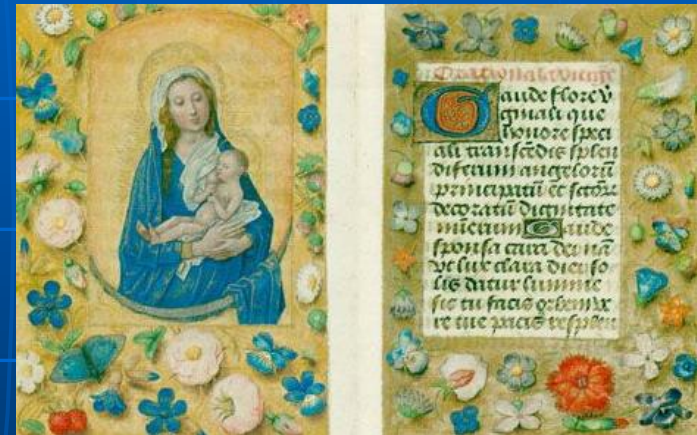 Oratio
Gaude flore v̄
ginali que
honore speci
ali transcēdis splen
diferum angelorū
principatū et sctōr̄
decoratū dignitate
munerum Gaude
sponsa cara dei nā
vt lux clara diei so
lis datur lumine
sic tu facis orbem ve
re tue pacis resplen